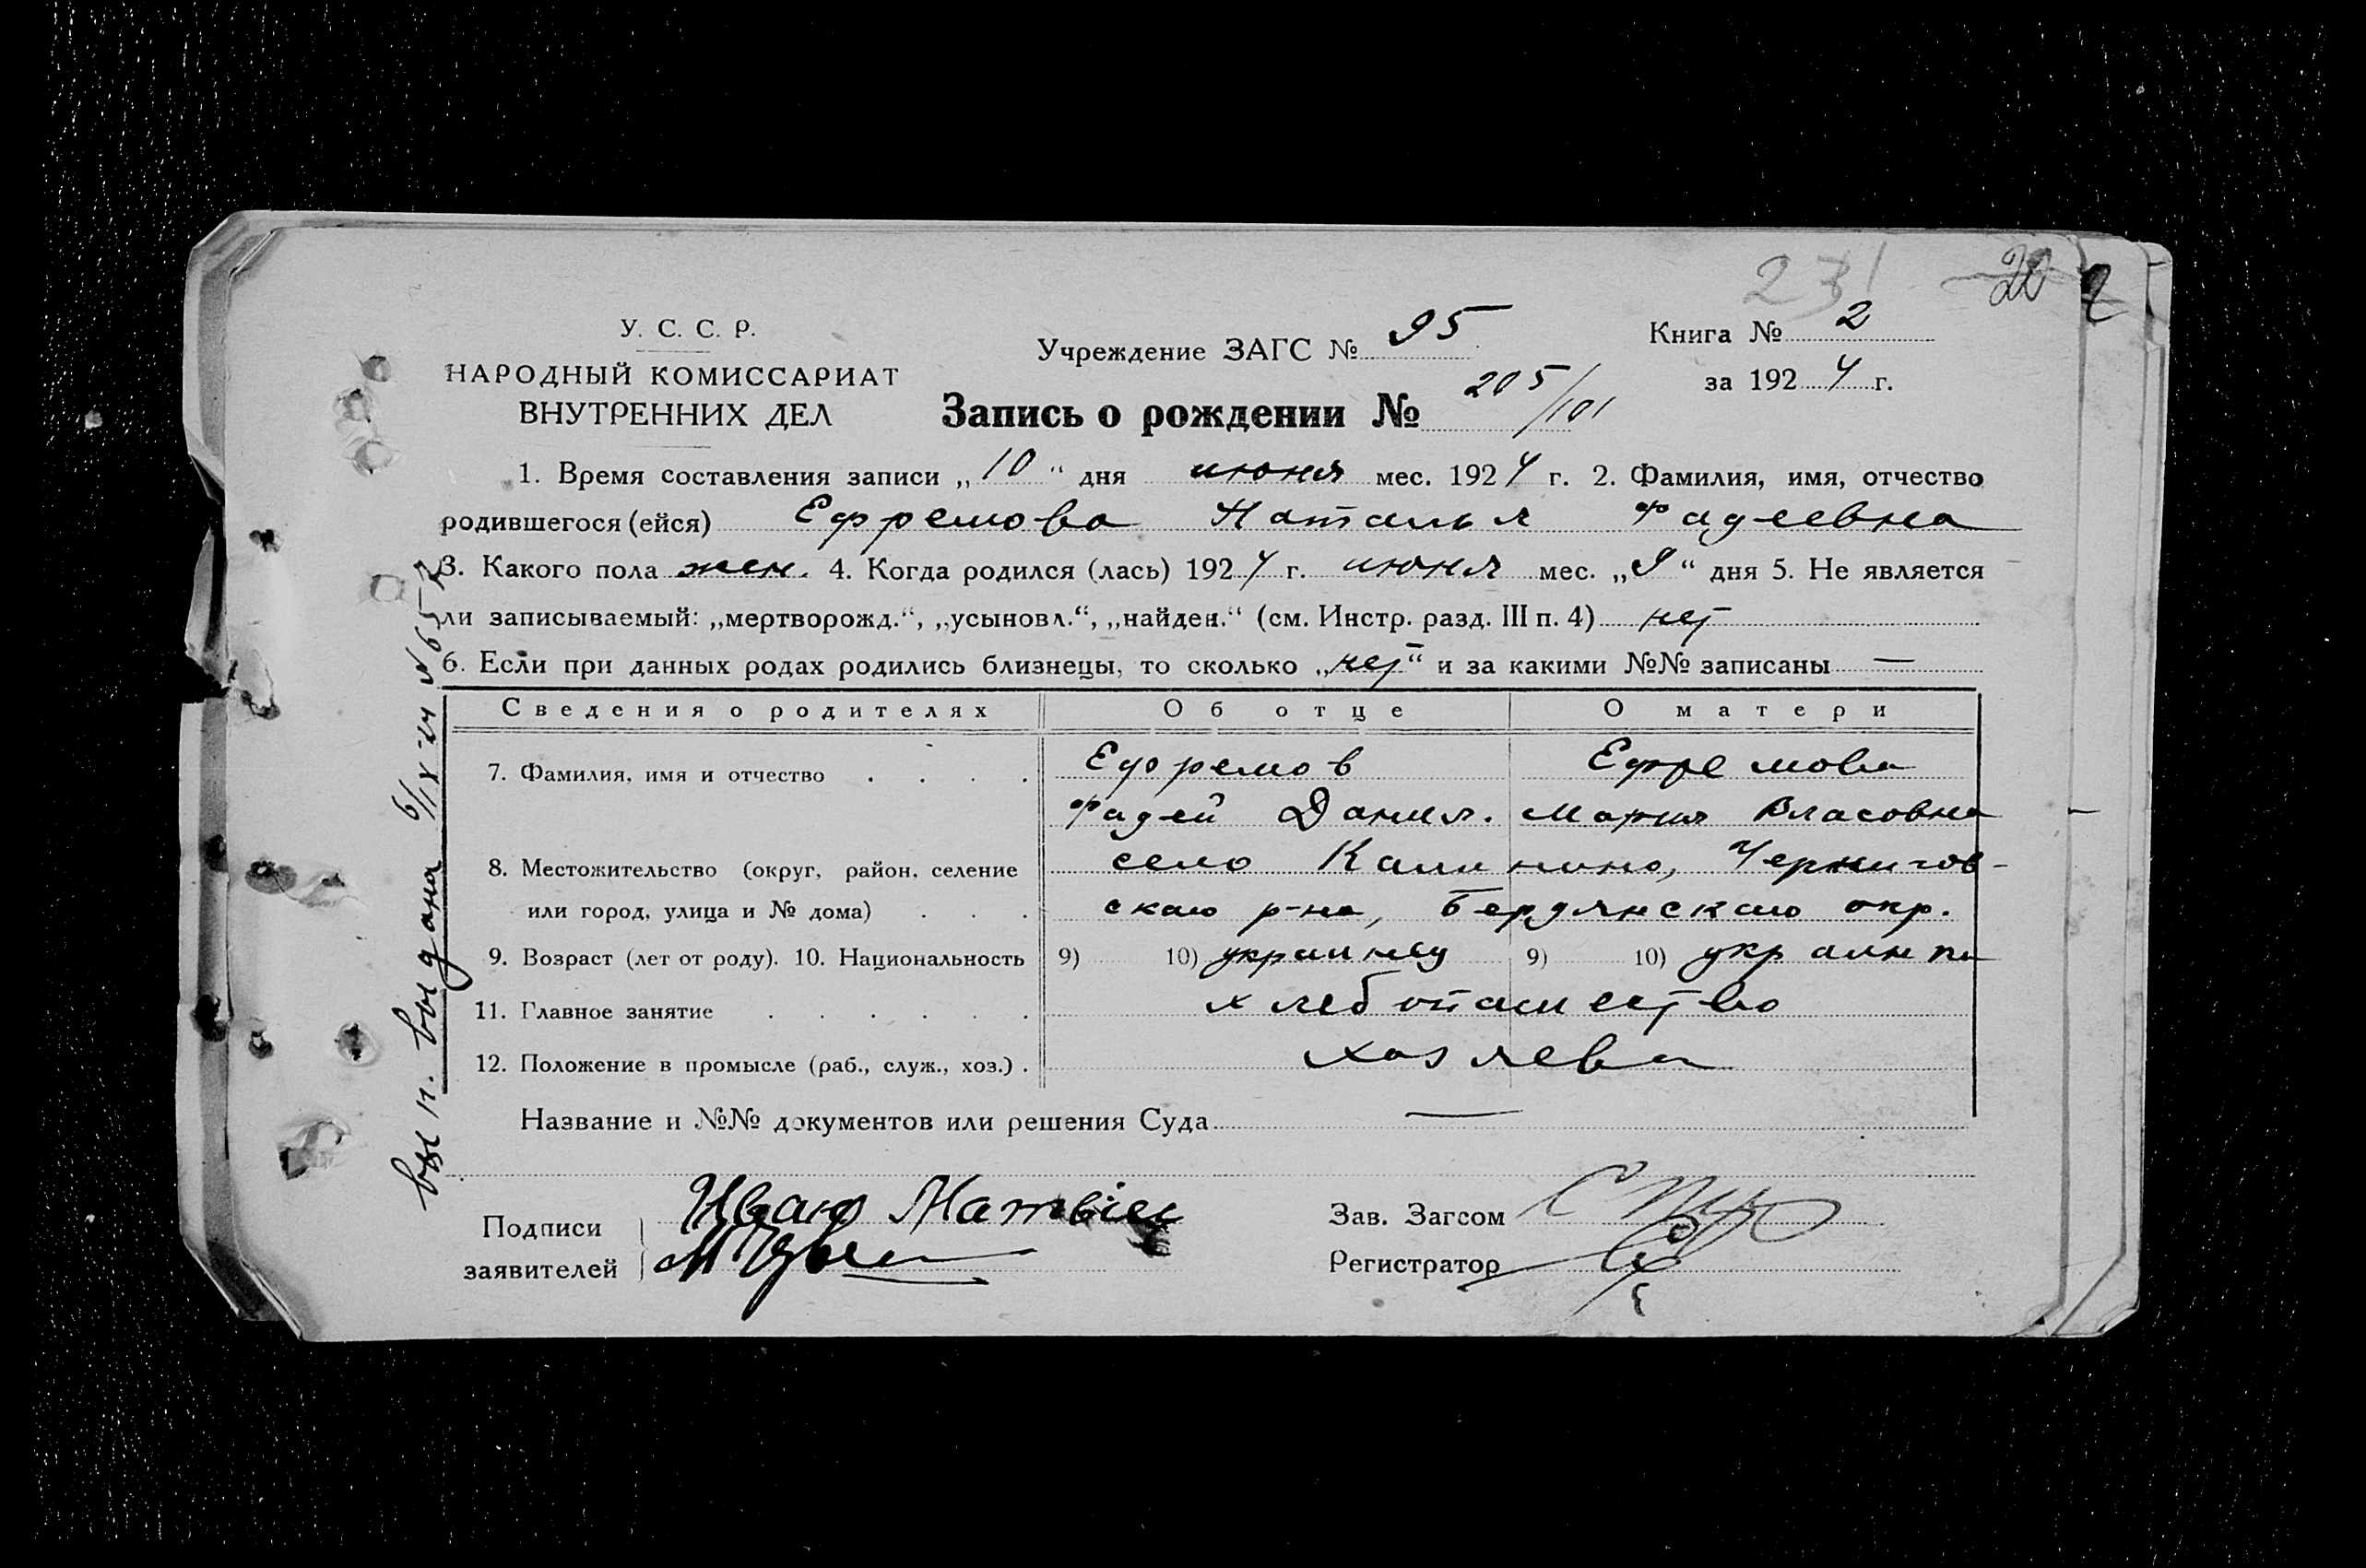 231 20 2
У. С. С. Р.
НАРОДНЫЙ КОМИССАРИАТ
ВНУТРЕННИХ ДЕЛ
Учреждение ЗАГС № 95
Книга № 2
за 1924 г.
Запись о рождении № 205/101
1. Время составления записи „10“ дня июня мес. 1924 г. 2. Фамилия, имя, отчество
родившегося (ейся) Ефремова Наталья Фадеевна
3. Какого пола жен. 4. Когда родился (лась) 1924 г. июня мес. „9“ дня 5. Не является
ли записываемый: „мертворожд.“, „усыновл.“, „найден.“ (см. Инстр. разд. III п. 4) нет
6. Если при данных родах родились близнецы, то сколько „нет“ и за какими №№ записаны —
Сведения о родителях Об отце О матери
7. Фамилия, имя и отчество . . . . Ефремов Ефремова
Фадей Данил. Мария Власовна
8. Местожительство (округ, район, селение село Калинино, Чернигов-
или город, улица и № дома) . . . ского р-на, Бердянского окр.
9. Возраст (лет от роду). 10. Национальность 9) 10) украинец 9) 10) украинка
11. Главное занятие . . . . . . хлебопашество
12. Положение в промысле (раб., служ., хоз.) . хозяева
Название и №№ документов или решения Суда —
Подписи
заявителей
Зав. Загсом
Регистратор
вып. выдана 6/IX